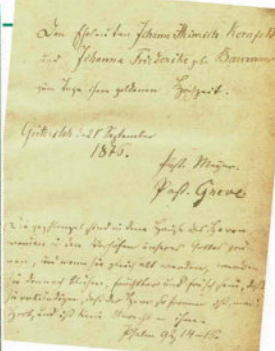 Den Eheleuten Johann Heinrich
und Johanna Friederike geb.
zum Tage ihrer goldenen Hochzeit.
Gütersloh den 8 September
1876.
Past. Meyer.
Past. Greve
Die gepflanzt sind in dem Hause des Herrn
werden in den Vorhöfen unseres Gottes grü-
nen, und wenn sie gleich alt werden, werden
sie dennoch blühen, fruchtbar und frisch sein, daß
sie verkündigen, daß der Herr so fromm ist, mein
Hort, und ist kein Unrecht an ihm.
Psalm 92, 14-16.